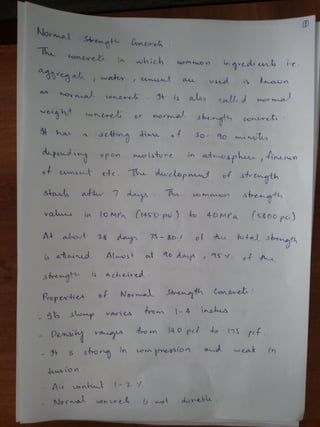 ①
Normal Strength Concrete:
The concrete in which common ingredients i.e.
aggregate, water, cement are used is known
as normal concrete. It is also called normal
weight concrete or normal strength concrete.
It has a setting time of 30-90 minutes
depending upon moisture in atmosphere, fineness
of cement etc. The development of strength
starts after 7 days. The common strength
values is 10 MPa (1450 psi) to 40 MPa (5800 psi)
At about 28 days 75-80% of the total strength
is attained. Almost at 90 days, 95% of the
strength is acheived.
Properties of Normal Strength Concrete:
- Its slump varies from 1-4 inches
- Density ranges from 140 pcf to 175 pcf.
- It is strong in compression and weak in
tension
- Air content 1-2%
- Normal concrete is not durable.